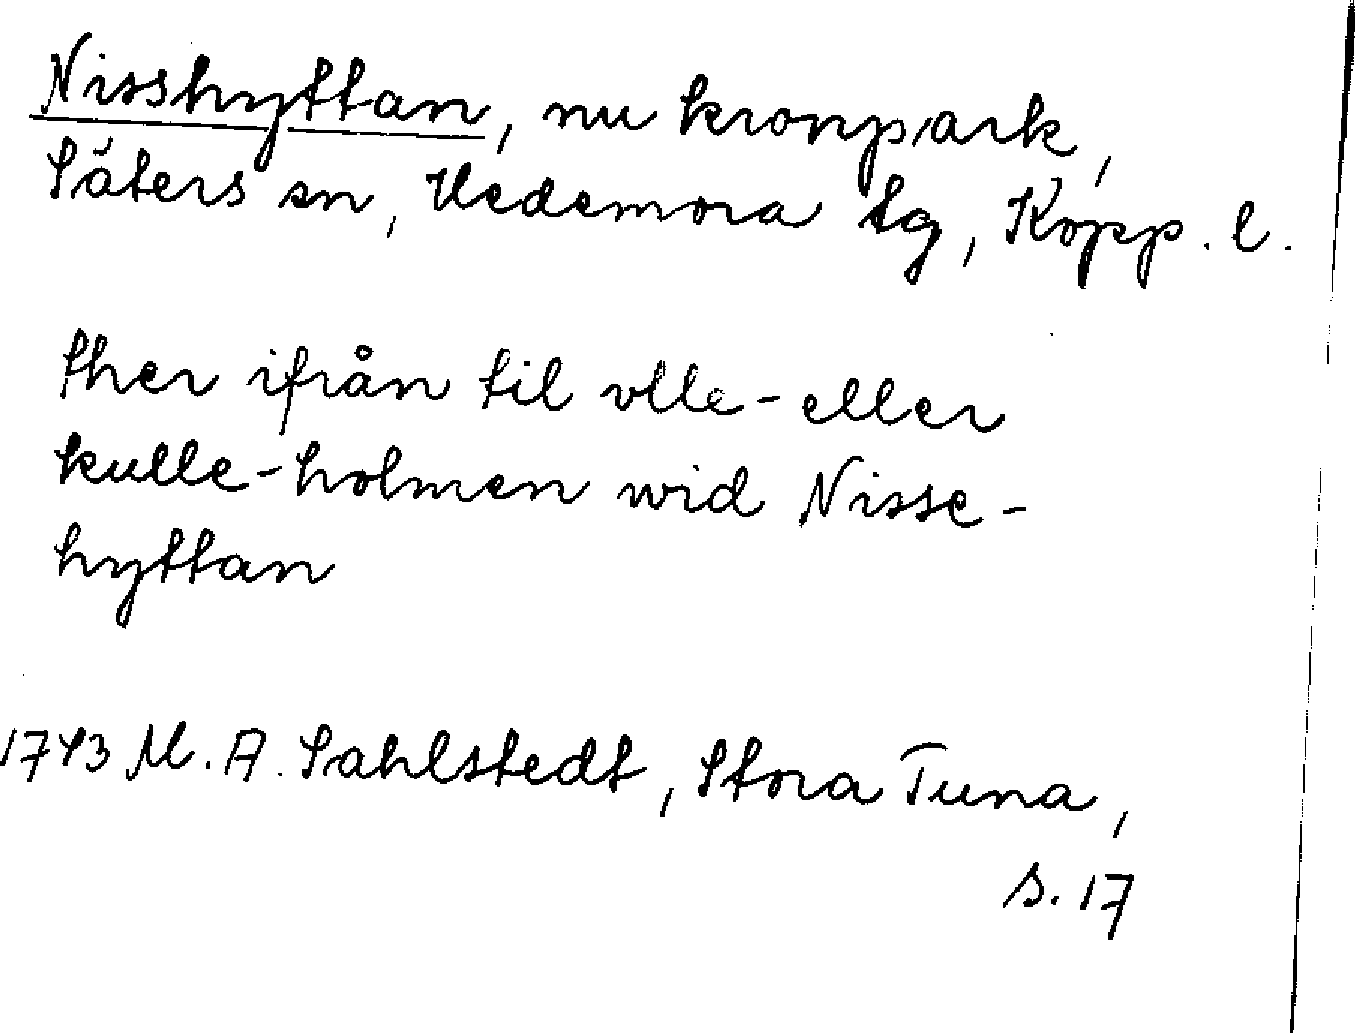 Nisshyttan, nu kronpark,
Säters sn, Hedemora tg, Kopp. l.
ther ifrån til vlle- eller
kulle-holmen wid Nisse-
hyttan
1743 M. A. Sahlstedt, Stora Tuna,
s. 17